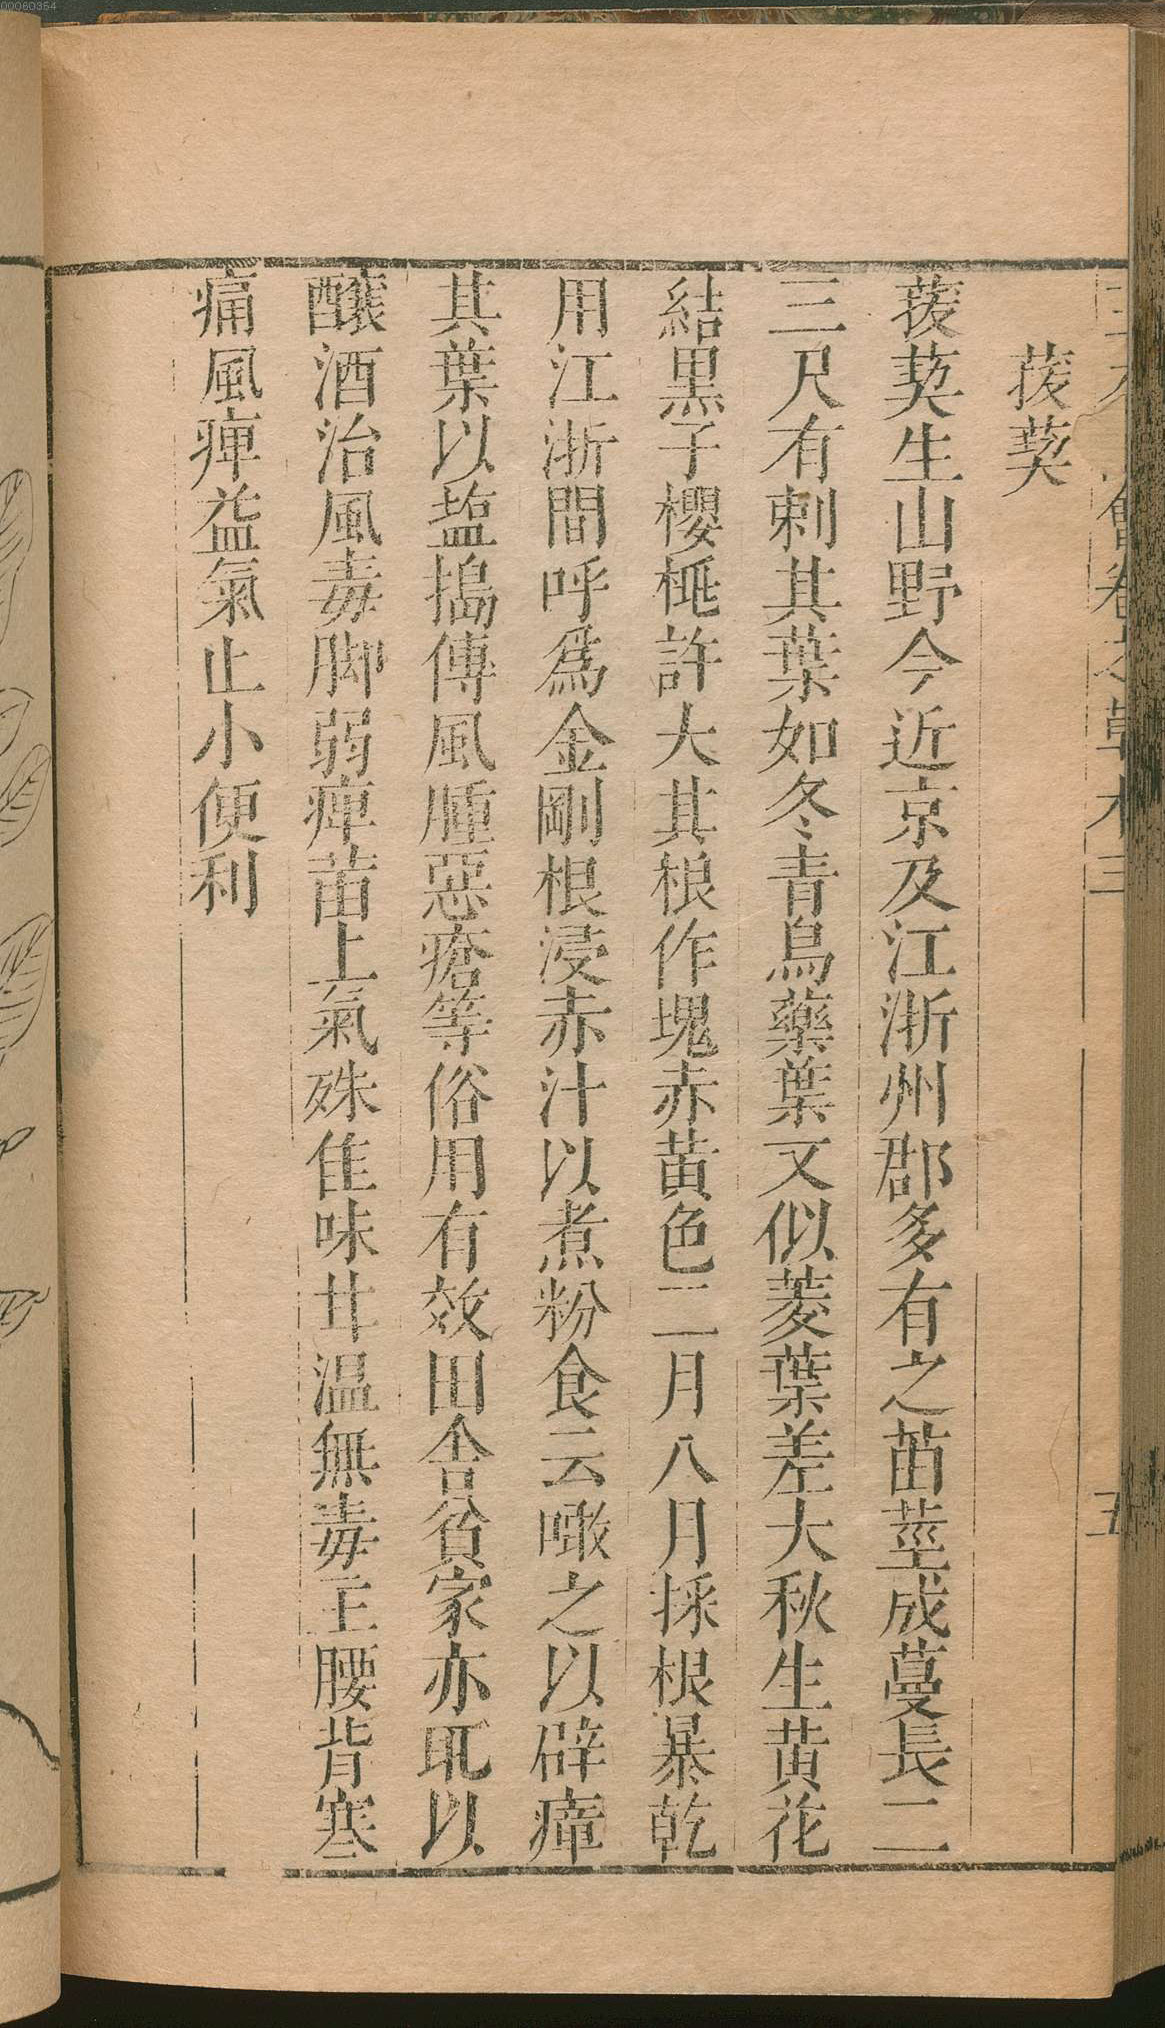 00060354
菝葜
菝葜生山野今近京及江浙州郡多有之苗莖成蔓長二
三尺有刺其葉如冬青烏藥葉又似菱葉差大秋生黄花
結黒子櫻桃許大其根作塊赤黄色二月八月採根暴乾
用江浙間呼爲金剛根浸赤汁以煮粉食云噉之以辟瘴
其葉以塩搗傅風腫惡瘡等俗用有效田舍貧家亦取以
釀酒治風毒脚弱痺苗上氣殊佳味甘温無毒主腰背寒
痛風痺益氣止小便利
五